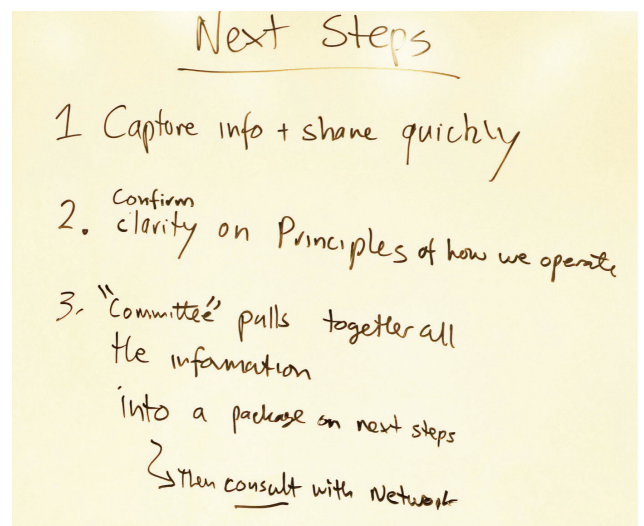 Next Steps
1 Capture info + share quickly
Confirm
2. clarity on Principles of how we operate
3. "Committee" pulls together all
the information
into a package on next steps
then consult with Network